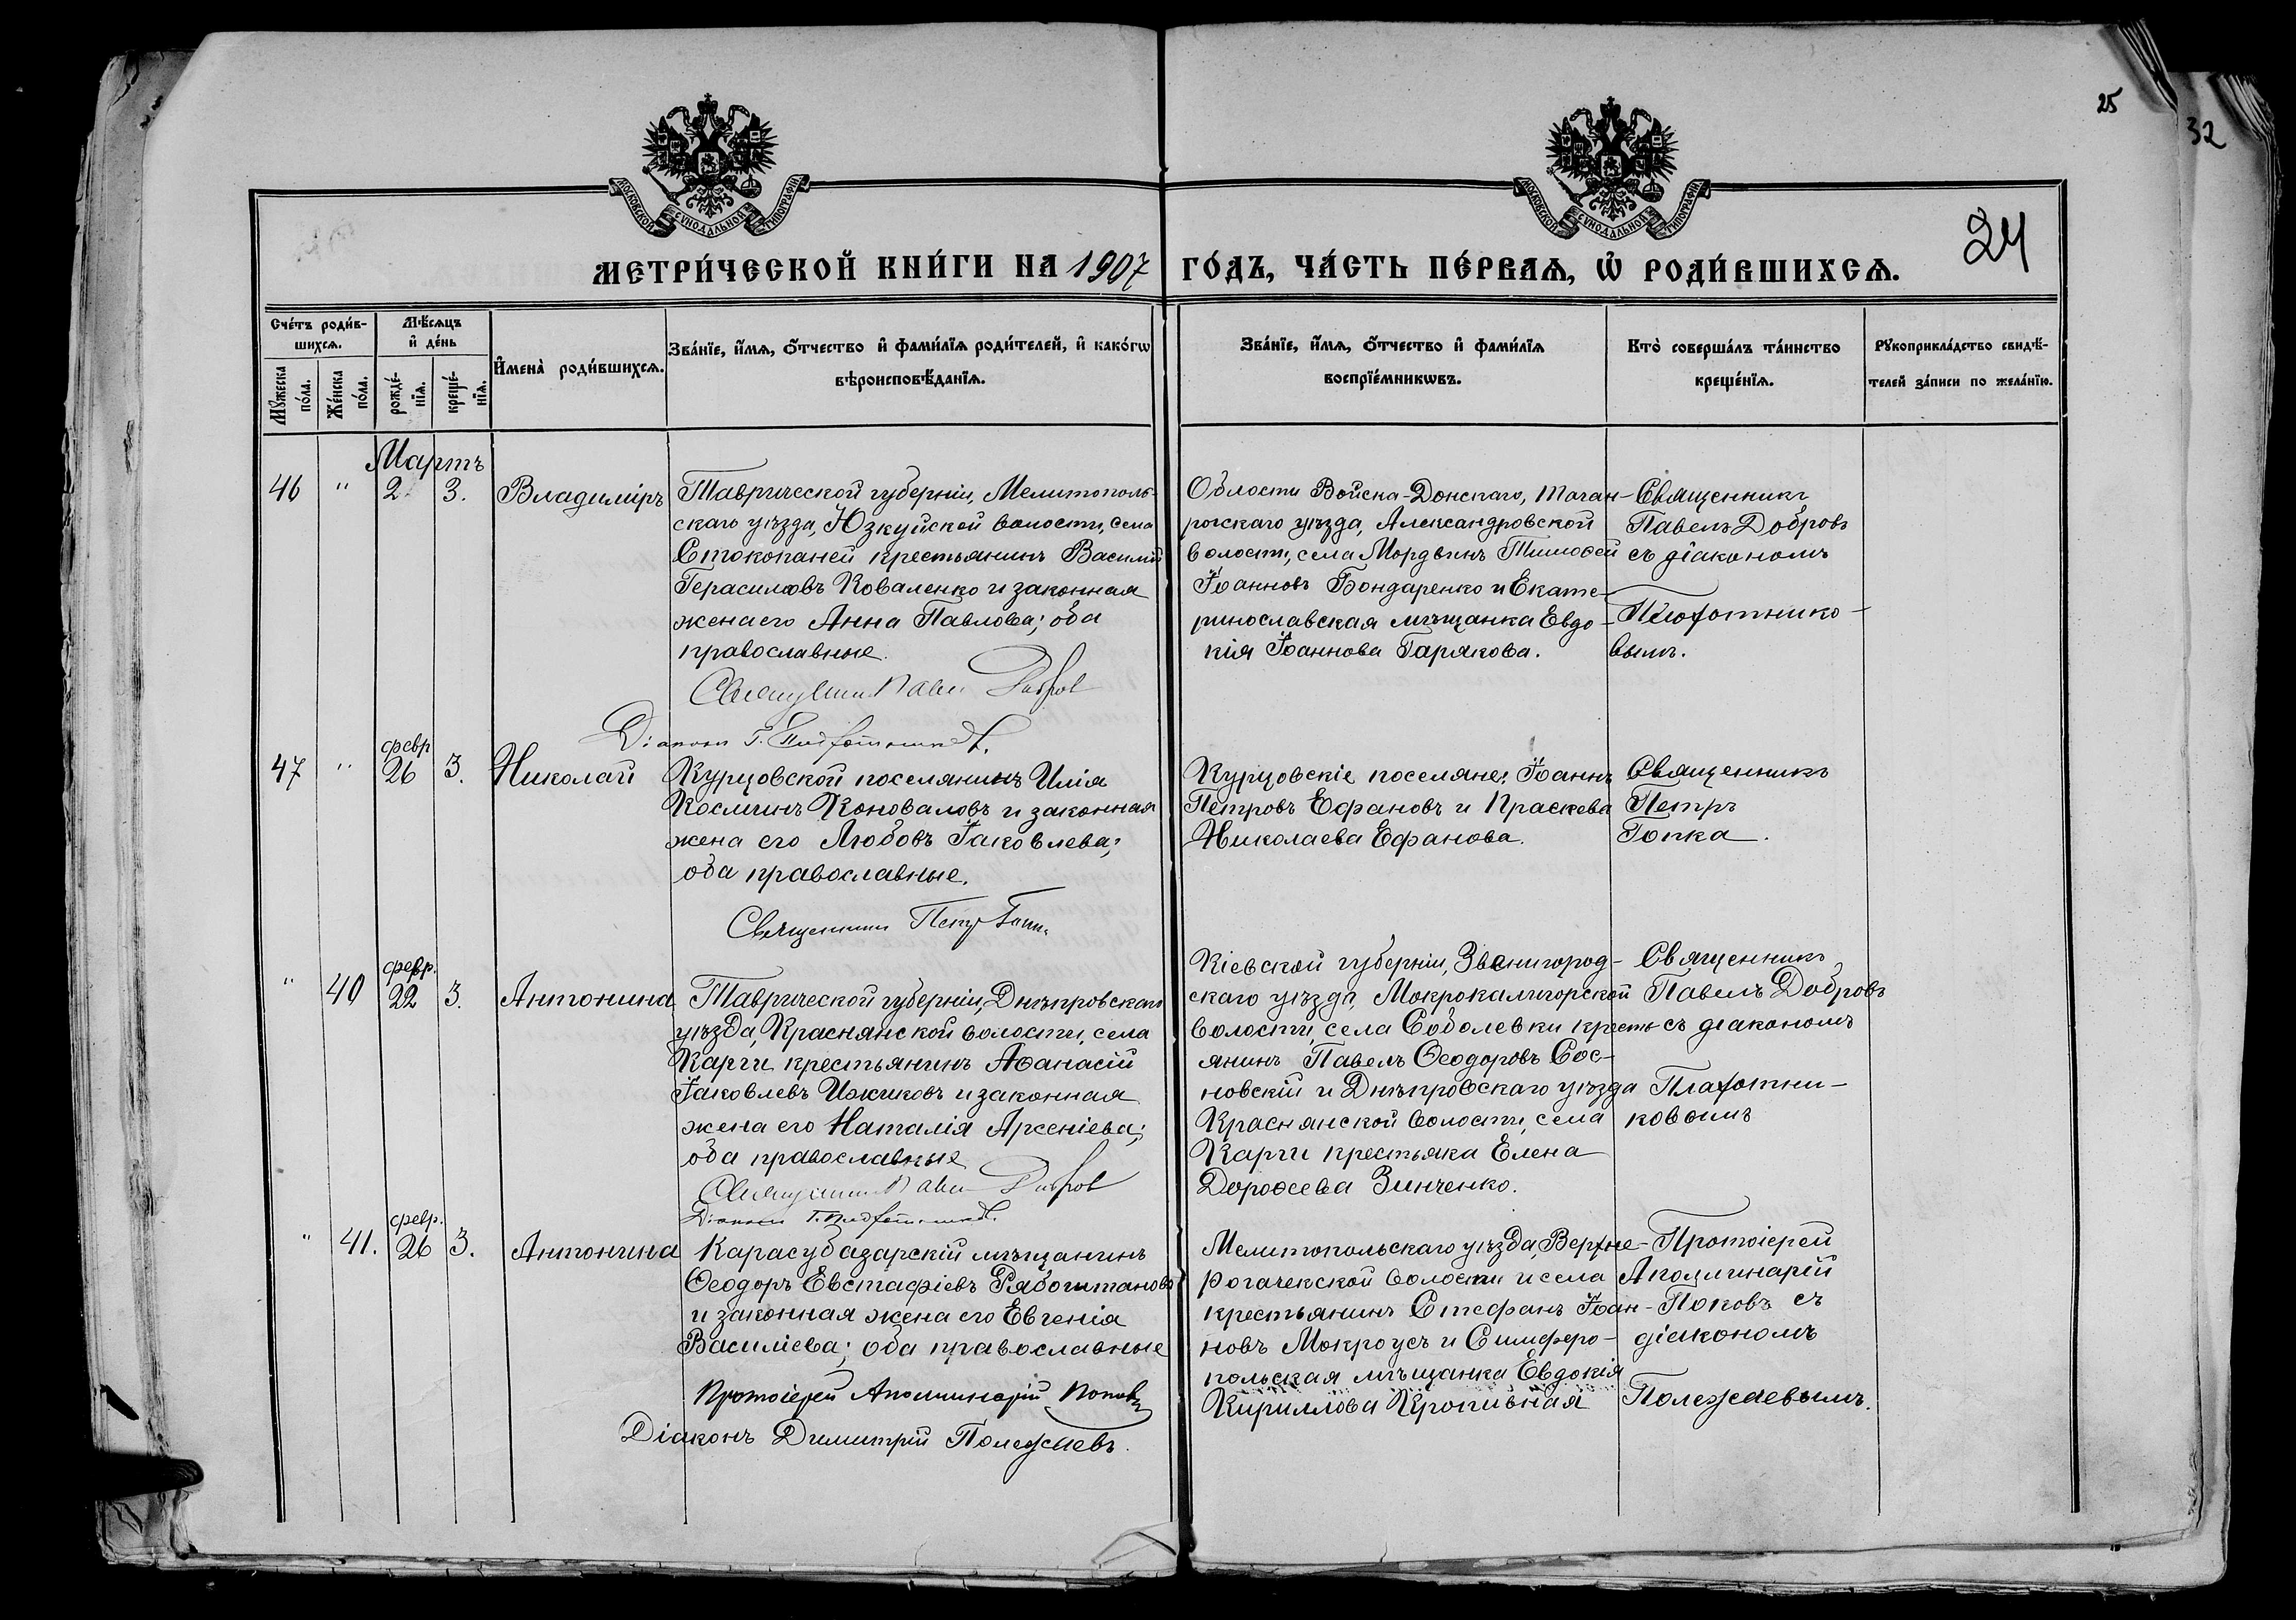 25
32
24
МОСКОВСКОЙ СѴНОДАЛЬНОЙ ТИПОГРАФІИ
МОСКОВСКОЙ СѴНОДАЛЬНОЙ ТИПОГРАФІИ
МЕТРИ́ЧЕСКОЙ КНИ́ГИ НА 1907 ГО́ДЪ, ЧА́СТЬ ПЕ́РВАѦ, Ѽ РОДИ́ВШИХСѦ.
Счéтъ роди́в-
шихсѧ.
Мꙋжеска пóла.
Жéнска пóла.
Мѣ́сѧцъ
и҆ дéнь
рождé-
нїѧ.
крещé-
нїѧ.
И҆менà роди́вшихсѧ.
Звáнїе, и҆́мѧ, ѻ҆́тчество и҆ фами́лїѧ роди́телей, и҆ какóгѡ
вѣроисповѣ́данїѧ.
Звáнїе, и҆́мѧ, ѻ҆́тчество и҆ фами́лїѧ
воспрїéмникѡвъ.
Ктò совершáлъ тáинство
крещéнїѧ.
Рꙋкоприклáдство свидѣ́-
телей зáписи по желáнїю.
Мартъ
46 " 2 3. Владиміръ
Таврической губерніи, Мелитополь-
скаго уѣзда, Юзкуйской волости, села
Стокопаней крестьянинъ Василій
Герасимовъ Коваленко и законная
жена его Анна Павлова; оба
православные.
Священник Павел Добров
Діакон Г.
Области Войска-Донскаго, Таган-
рогскаго уѣзда, Александровской
волости, села Мордвинъ Тимоѳей
Іоанновъ Бондаренко и Екате-
ринославская мѣщанка Евдо-
кія Іоаннова Гарякова.
Священникъ
Павелъ Добровъ
съ діакономъ
вымъ.
февр
47 " 26 3. Николай
Курцовской поселянинъ Илія
Косминъ Коноваловъ и законная
жена его Любовь Іаковлева;
оба православные.
Священник Петр Гопка
Курцовскіе поселяне: Іоаннъ
Петровъ Ефановъ и Праскева
Николаева Ефанова.
Священникъ
Петръ
Гопка.
февр.
" 40 22 3. Антонина
Таврической губерніи, Днѣпровскаго
уѣзда, Краснянской волости, села
Карги крестьянинъ Аѳанасій
Іаковлевъ Ижиковъ и законная
жена его Наталія Арсеніева;
оба православные
Священник Павел Добров
Діакон Г.
Кіевской губерніи, Звенигород-
скаго уѣзда, Мокрокалигорской
волости, села Соболевки кресть-
янинъ Павелъ Ѳеодоровъ Сос-
новскій и Днѣпровскаго уѣзда
Краснянской волости, села
Карги крестьяка Елена
Дороѳеева Зинченко.
Священникъ
Павелъ Добровъ
съ діакономъ
Плахотни-
ковымъ
февр.
" 41. 26 3. Антонина
Карасубазарскій мѣщанинъ
Ѳеодоръ Евстафіевъ Рябоштановъ
и законная жена его Евгенія
Василіева; оба православные
Протоіерей Аполлинарій Поповъ
Діаконъ Димитрій Полежаевъ.
Мелитопольскаго уѣзда, Верхне-
рогачекской волости и села
крестьянинъ Стефанъ Іоан-
новъ Мокроусъ и Симферо-
польская мѣщанка Евдокія
Кириллова Кропивная
Протоіерей
Аполлинарій
Поповъ съ
діакономъ
Полежаевымъ.